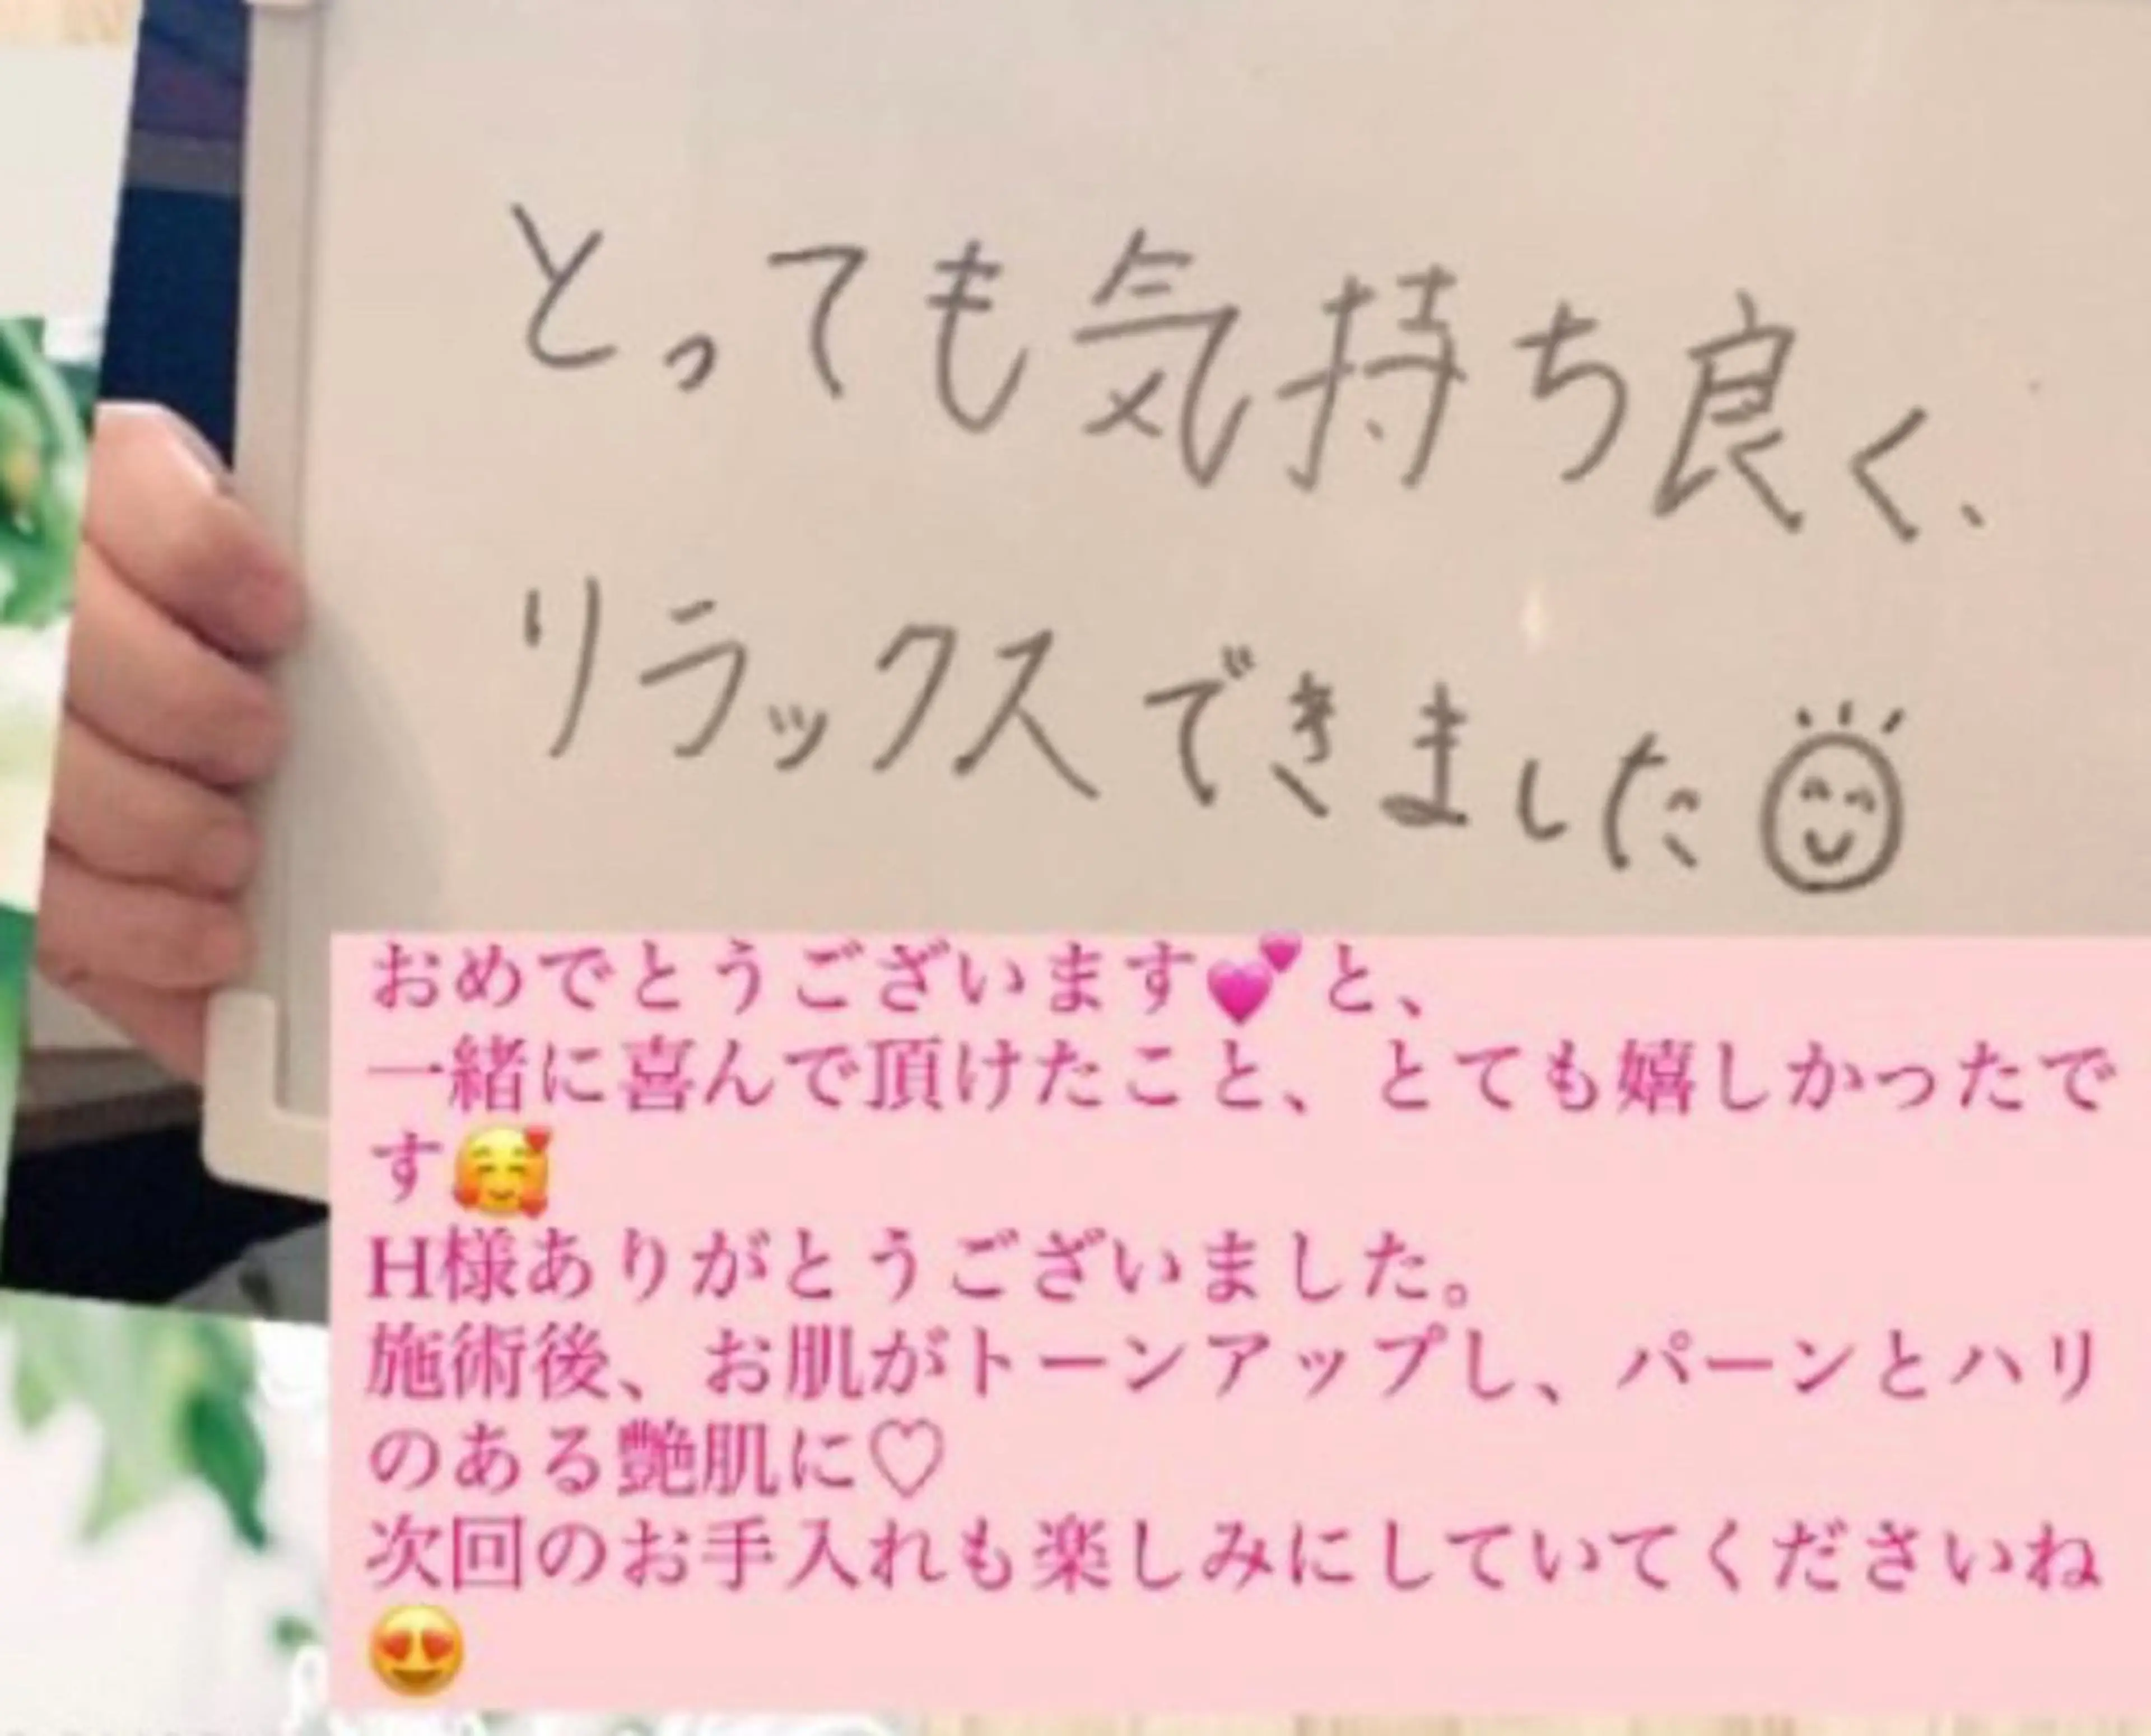 とっても気持ち良く、
リラックスできました
おめでとうございます💕と、
一緒に喜んで頂けたこと、とても嬉しかったで
す🥰
H様ありがとうございました。
施術後、お肌がトーンアップし、パーンとハリ
のある艶肌に♡
次回のお手入れも楽しみにしていてくださいね
😍